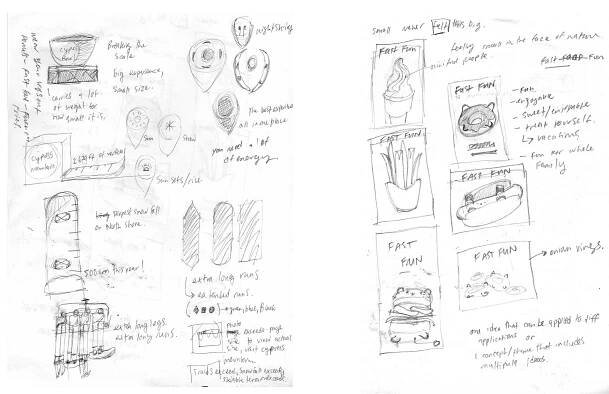 wear your vest out
Cypress
Bowl
Breaking the
Scale
big experience,
Small size.
carries a lot
of weight for
how small it is.
night skiing
The best experience
all in one place
you need a lot
of energy
Cypress
mountain
2,679 ft of vertical
Sun
Snow
Sun sets/rise
deepest snow fall
on North Shore.
500cm this year!
extra long legs.
extra long runs.
extra long runs
extended runs.
green, blue, black
photo
exceeds page
size to view actual
size, visit cypress
mountain.
small never felt this big.
Feeling small in the face of nature
mini fied people.
FAST FUN
Fast Fun
FAST FUN
- Fun
- enjoyable
- sweet/enjoyable
- treat yourself.
↳ vacation
- Fun for whole
family
FAST FUN
FAST FUN
FAST
FUN
FAST FUN
→ onion rings.
one idea that can be applied to diff
applications or
1 concept/theme that includes
multiple ideas.